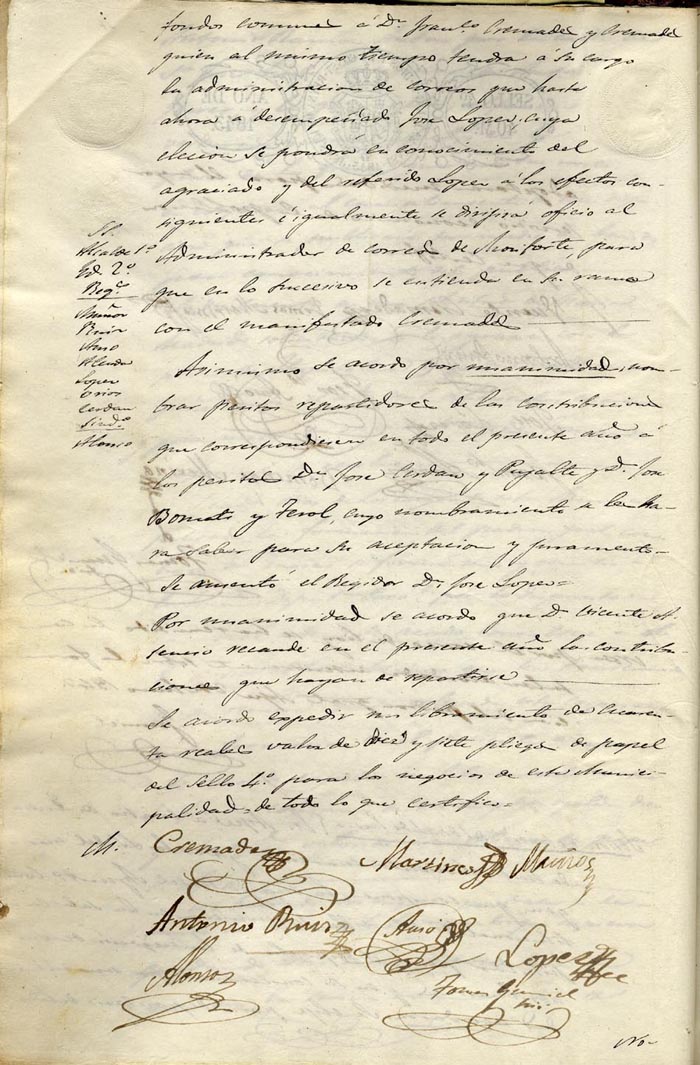 fondos comunes á Dn. Franco. Cremades y Cremades
quien al mismo tiempo tendra á su cargo
la administracion de correos que hasta
ahora á desempeñado Jose Lopez, cuya
eleccion se pondrá en conocimiento del
agraciado y del referido Lopez á los efectos con-
siguientes é igualmente se dirijirá oficio al
Administrador de correos de Monforte, para
que en lo sucesivo se entienda en su ramo
con el manifestado Cremades
SS.
Alcalde 1º
Yd. 2º
Regs.
Muñoz
Ruiz
Auso
Lopez
Cerdan
Sindo.
Alonso
Asimismo se acordo por unanimidad, nom-
brar peritos repartidores de las contribuciones
que correspondiesen en todo el presente año á
los peritos Dn. Jose Cerdan y Pujalte y D. Jose
Bonmati y Terol, cuyo nombramiento se les ha-
ra saber para su aceptacion y juramento
Se ausentó el Regidor Dn. Jose Lopez=
Por unanimidad se acordo que D. Vicente A-
sencio recaude en el presente año las contribu-
ciones que hayan de repartirse
Se acordo expedir un libramiento de cuaren-
ta reales valor de diez y siete pliegos de papel
del sello 4º para los negocios de esta Munici-
palidad= de todo lo que certifico=
M. Cremades Martinez Muñoz
Antonio Ruiz Auso Lopez
Alonso